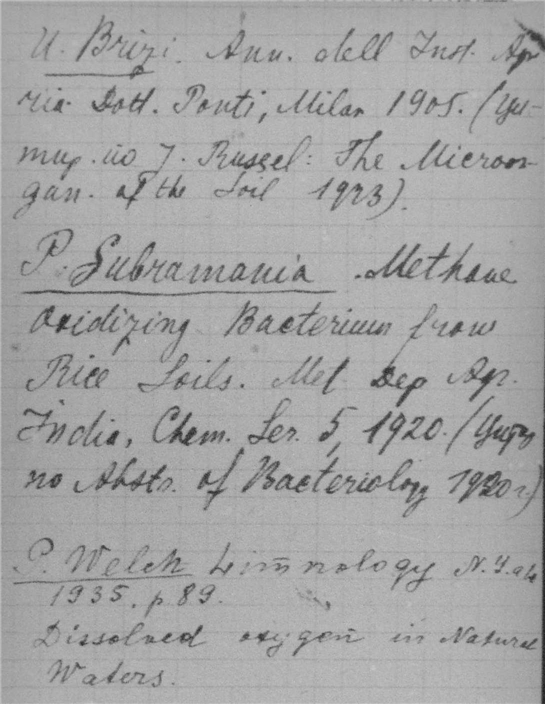 U. Brizi. Ann. dell Inst. Agr
ria Dott. Ponti, Milan 1905. (Ци-
тир. по J. Russel: The Microor-
gan. of the Soil 1923).
P. Subramania. Methane
Oxidizing Bacterium from
Rice Soils. Met Dep Agr.
India, Chem. Ser. 5, 1920. (Цитир
по Abstr. of Bacteriology 1920 г.)
P. Welch Limnology N.Y.
1935, p. 89.
Dissolved oxygen in Natural
Waters.